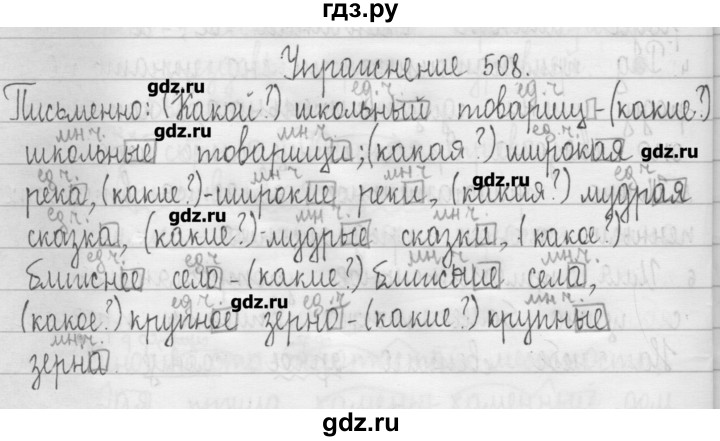 гдз.ру
Упражнение 508.
gdz.ru
ед.ч. ед.ч.
Письменно: (Какой?) школьный товарищ - (какие?)
мн.ч. gdz.ru мн.ч. ед.ч.
школьные товарищи; (какая?) широкая gdz.ru
ед.ч. мн.ч. мн.ч. gdz.ru ед.ч.
река, (какие?) - широкие реки, (какая?) мудрая
ед.ч. gdz.ru мн.ч. мн.ч.
сказка, (какие?) - мудрые сказки, (какое?)
ед.ч. ед.ч. мн.ч. мн.ч.
ближнее село - (какие?) ближние села,
ед.ч. gdz.ru ед.ч. мн.ч.
(какое?) крупное зерно - (какие?) крупные
мн.ч.
зерна
gdz.ru